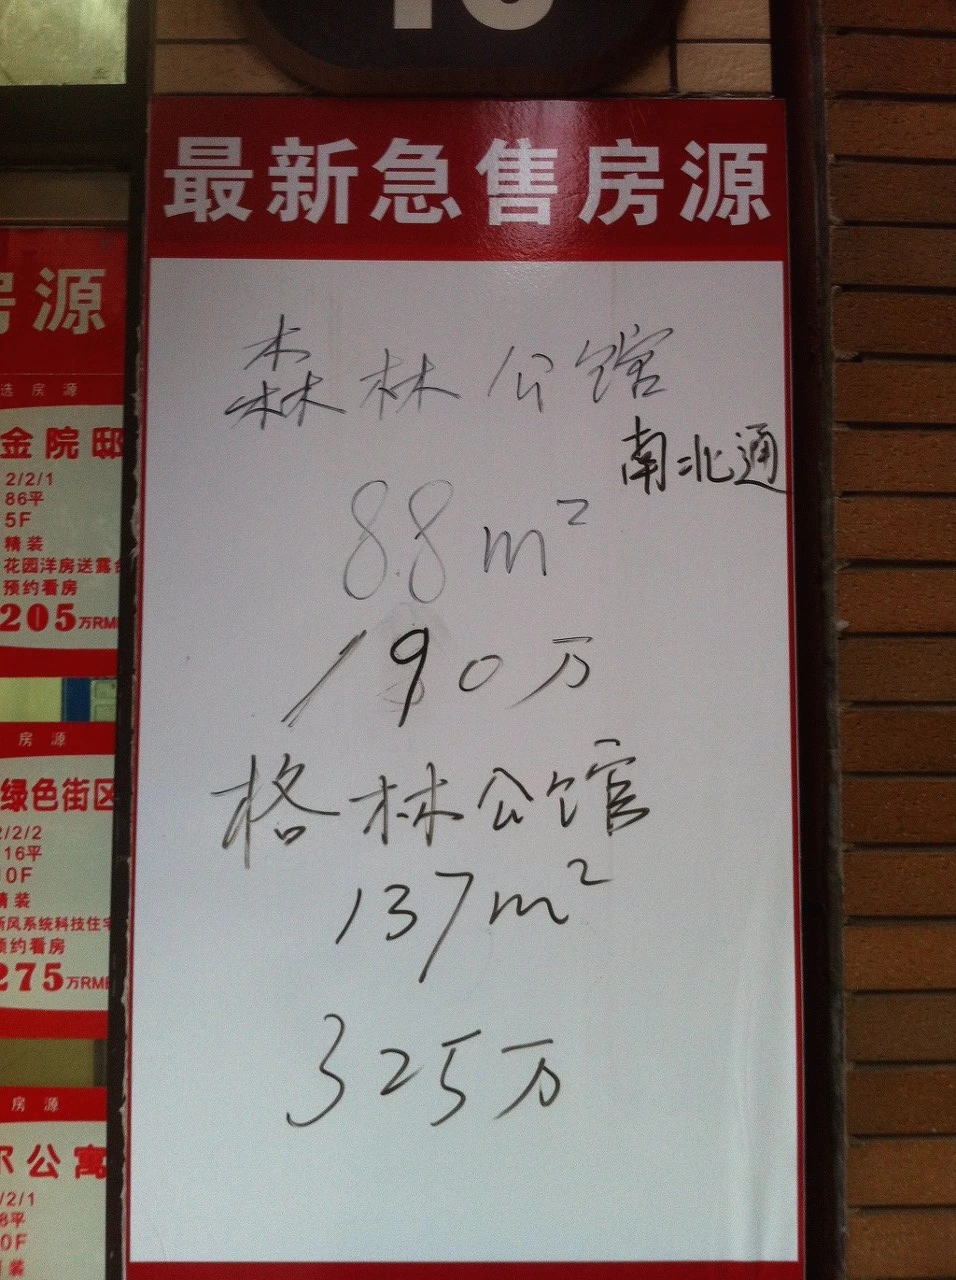 10
最新急售房源
森林公馆
南北通
88m²
190万
格林公馆
137m²
325万
房源
选房源
金院邸
2/2/1
86平
5F
精装
花园洋房送露台
预约看房
205万RMB
房源
绿色街区
2/2/2
116平
10F
精装
新风系统科技住宅
预约看房
275万RMB
房源
尔公寓
/2/1
8平
0F
装